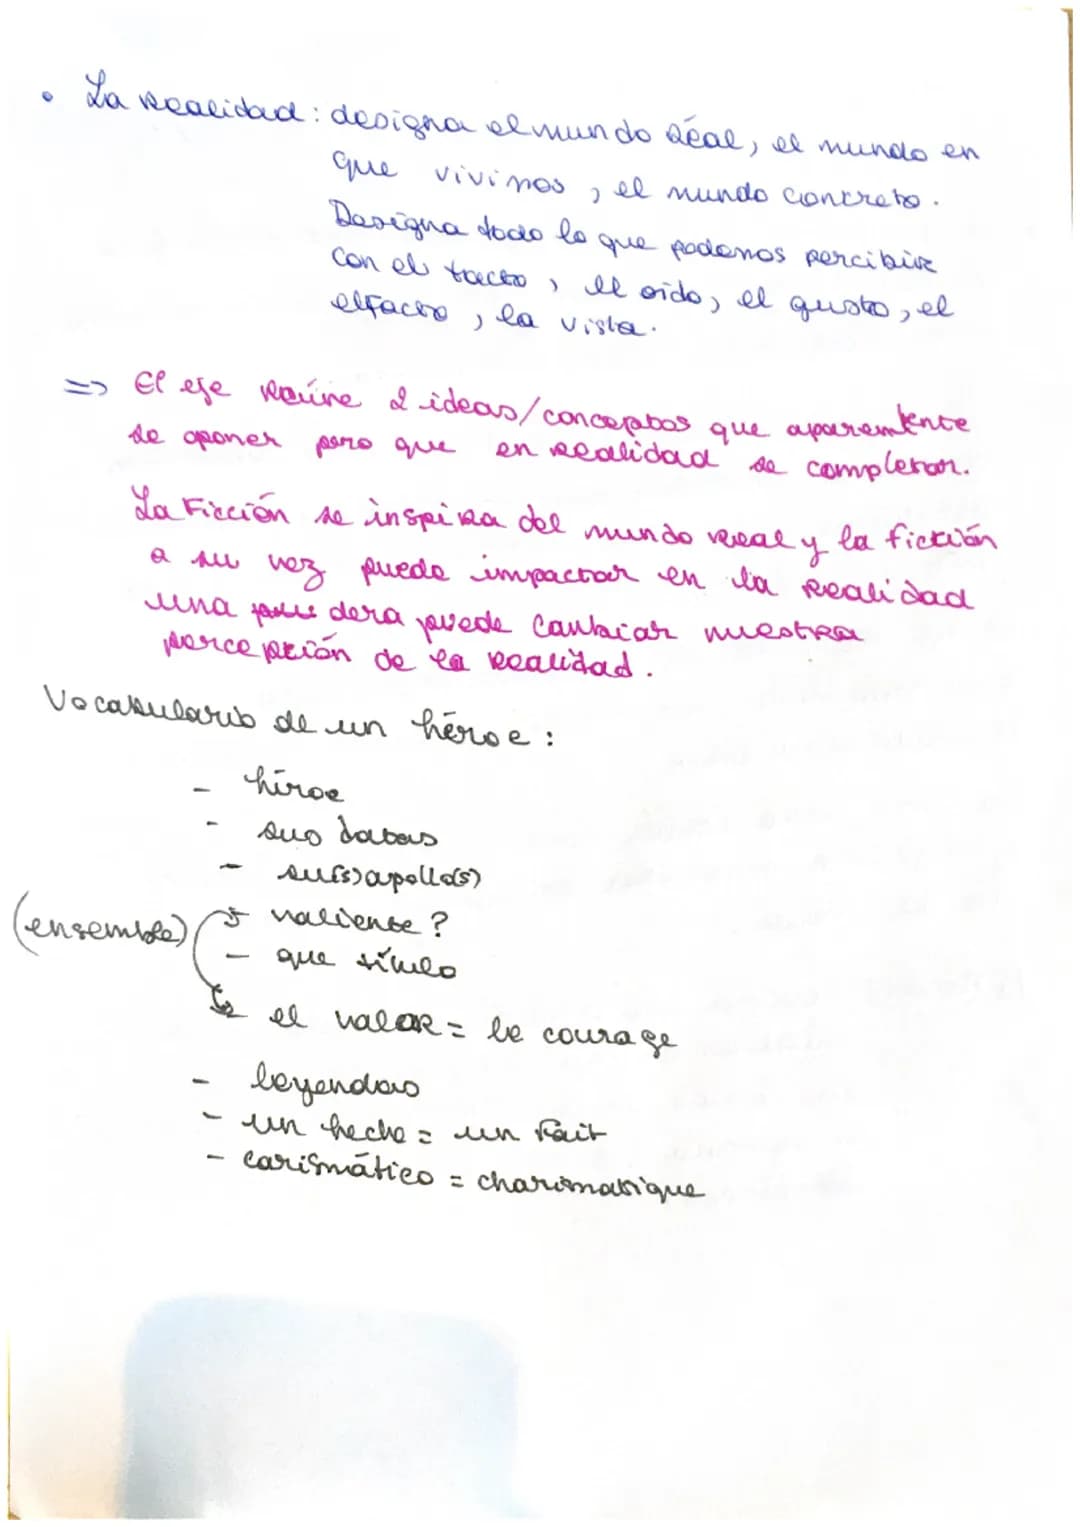 • La realidad : designa el mundo réal, el mundo en
que vivimos, el mundo concreto.
Designa todo lo que podemos percibir
con el tacto, el oido, el gusto, el
elfacto, la vista.
=> El eje reúne 2 ideas/conceptos que aparemtente
se oponer pero que en realidad se completan.
La Ficción se inspira del mundo real y la ficción
a su vez puede impactar en la realidad
una dera puede cambiar nuestra
percepción de la realidad.
Vocabulario de un héroe :
- híroe
- sus
- su(s) apollo(s)
(ensemble) - valiente ?
- que
↳ el valor = le courage
- leyendas
- un hecho = un fait
- carismático = charismatique